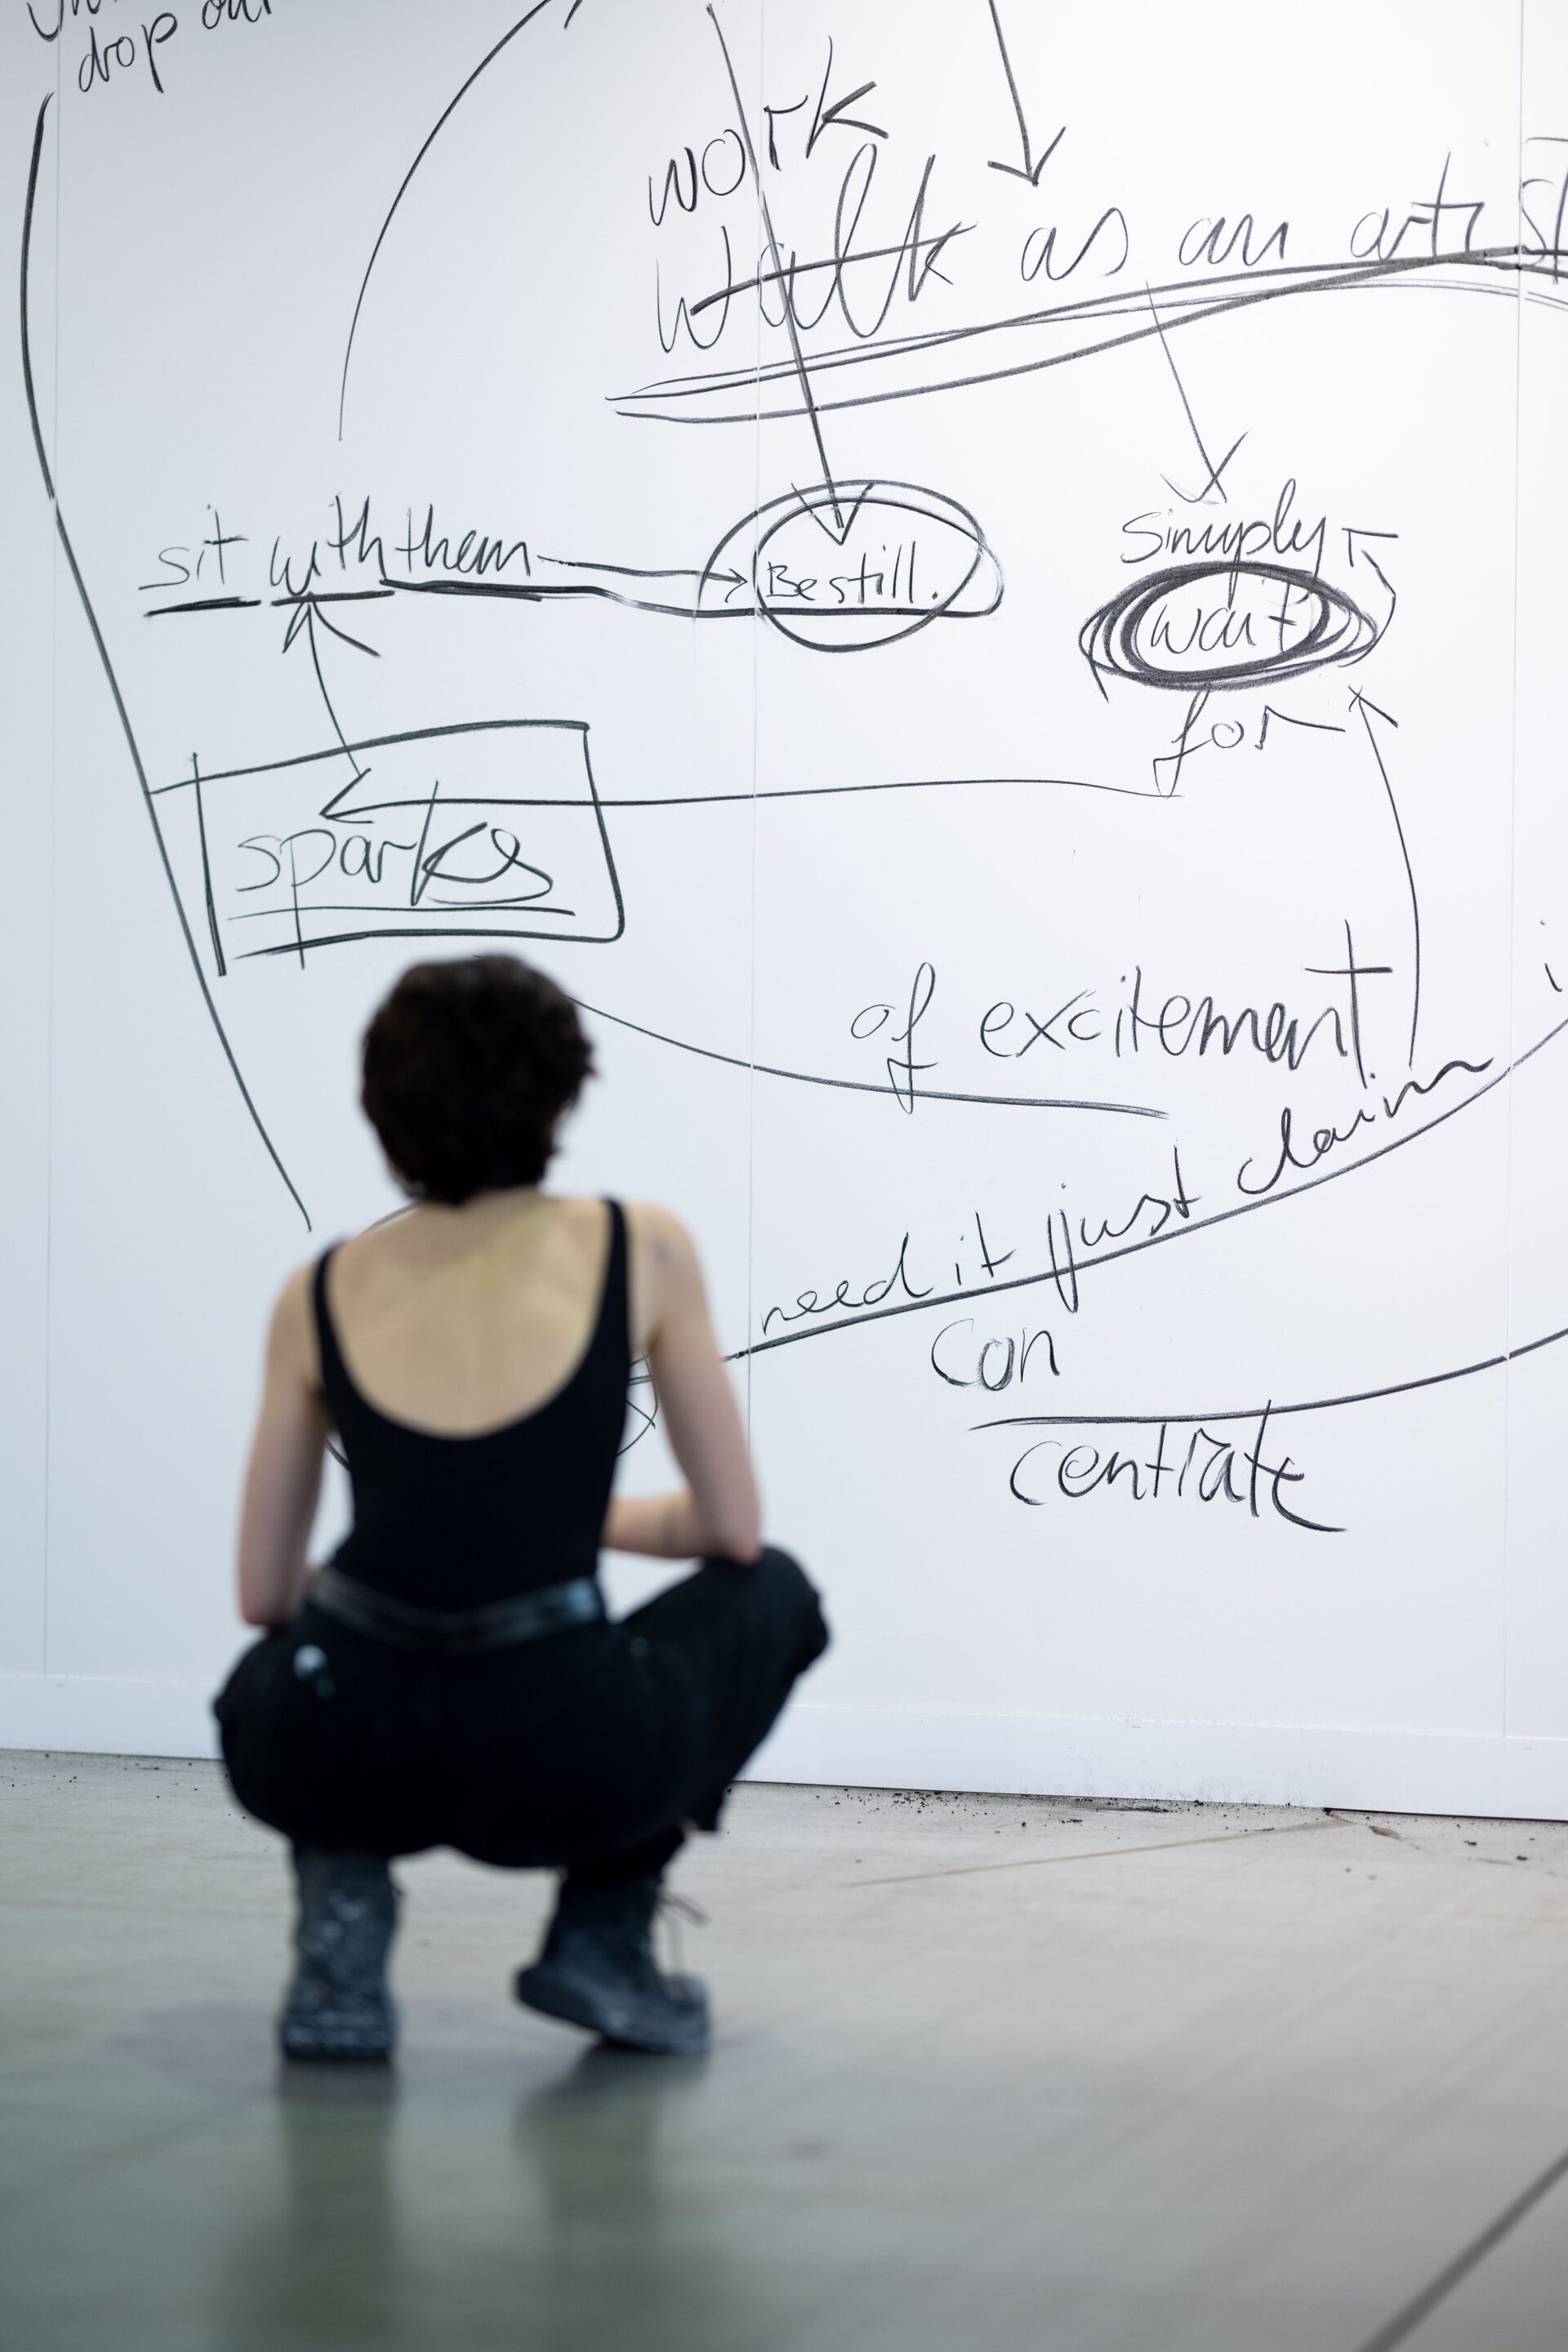 drop out
work
walk as an artist
sit with them
Be still.
simply
wait
for
sparks
of excitement
need it just claim
con
centrate